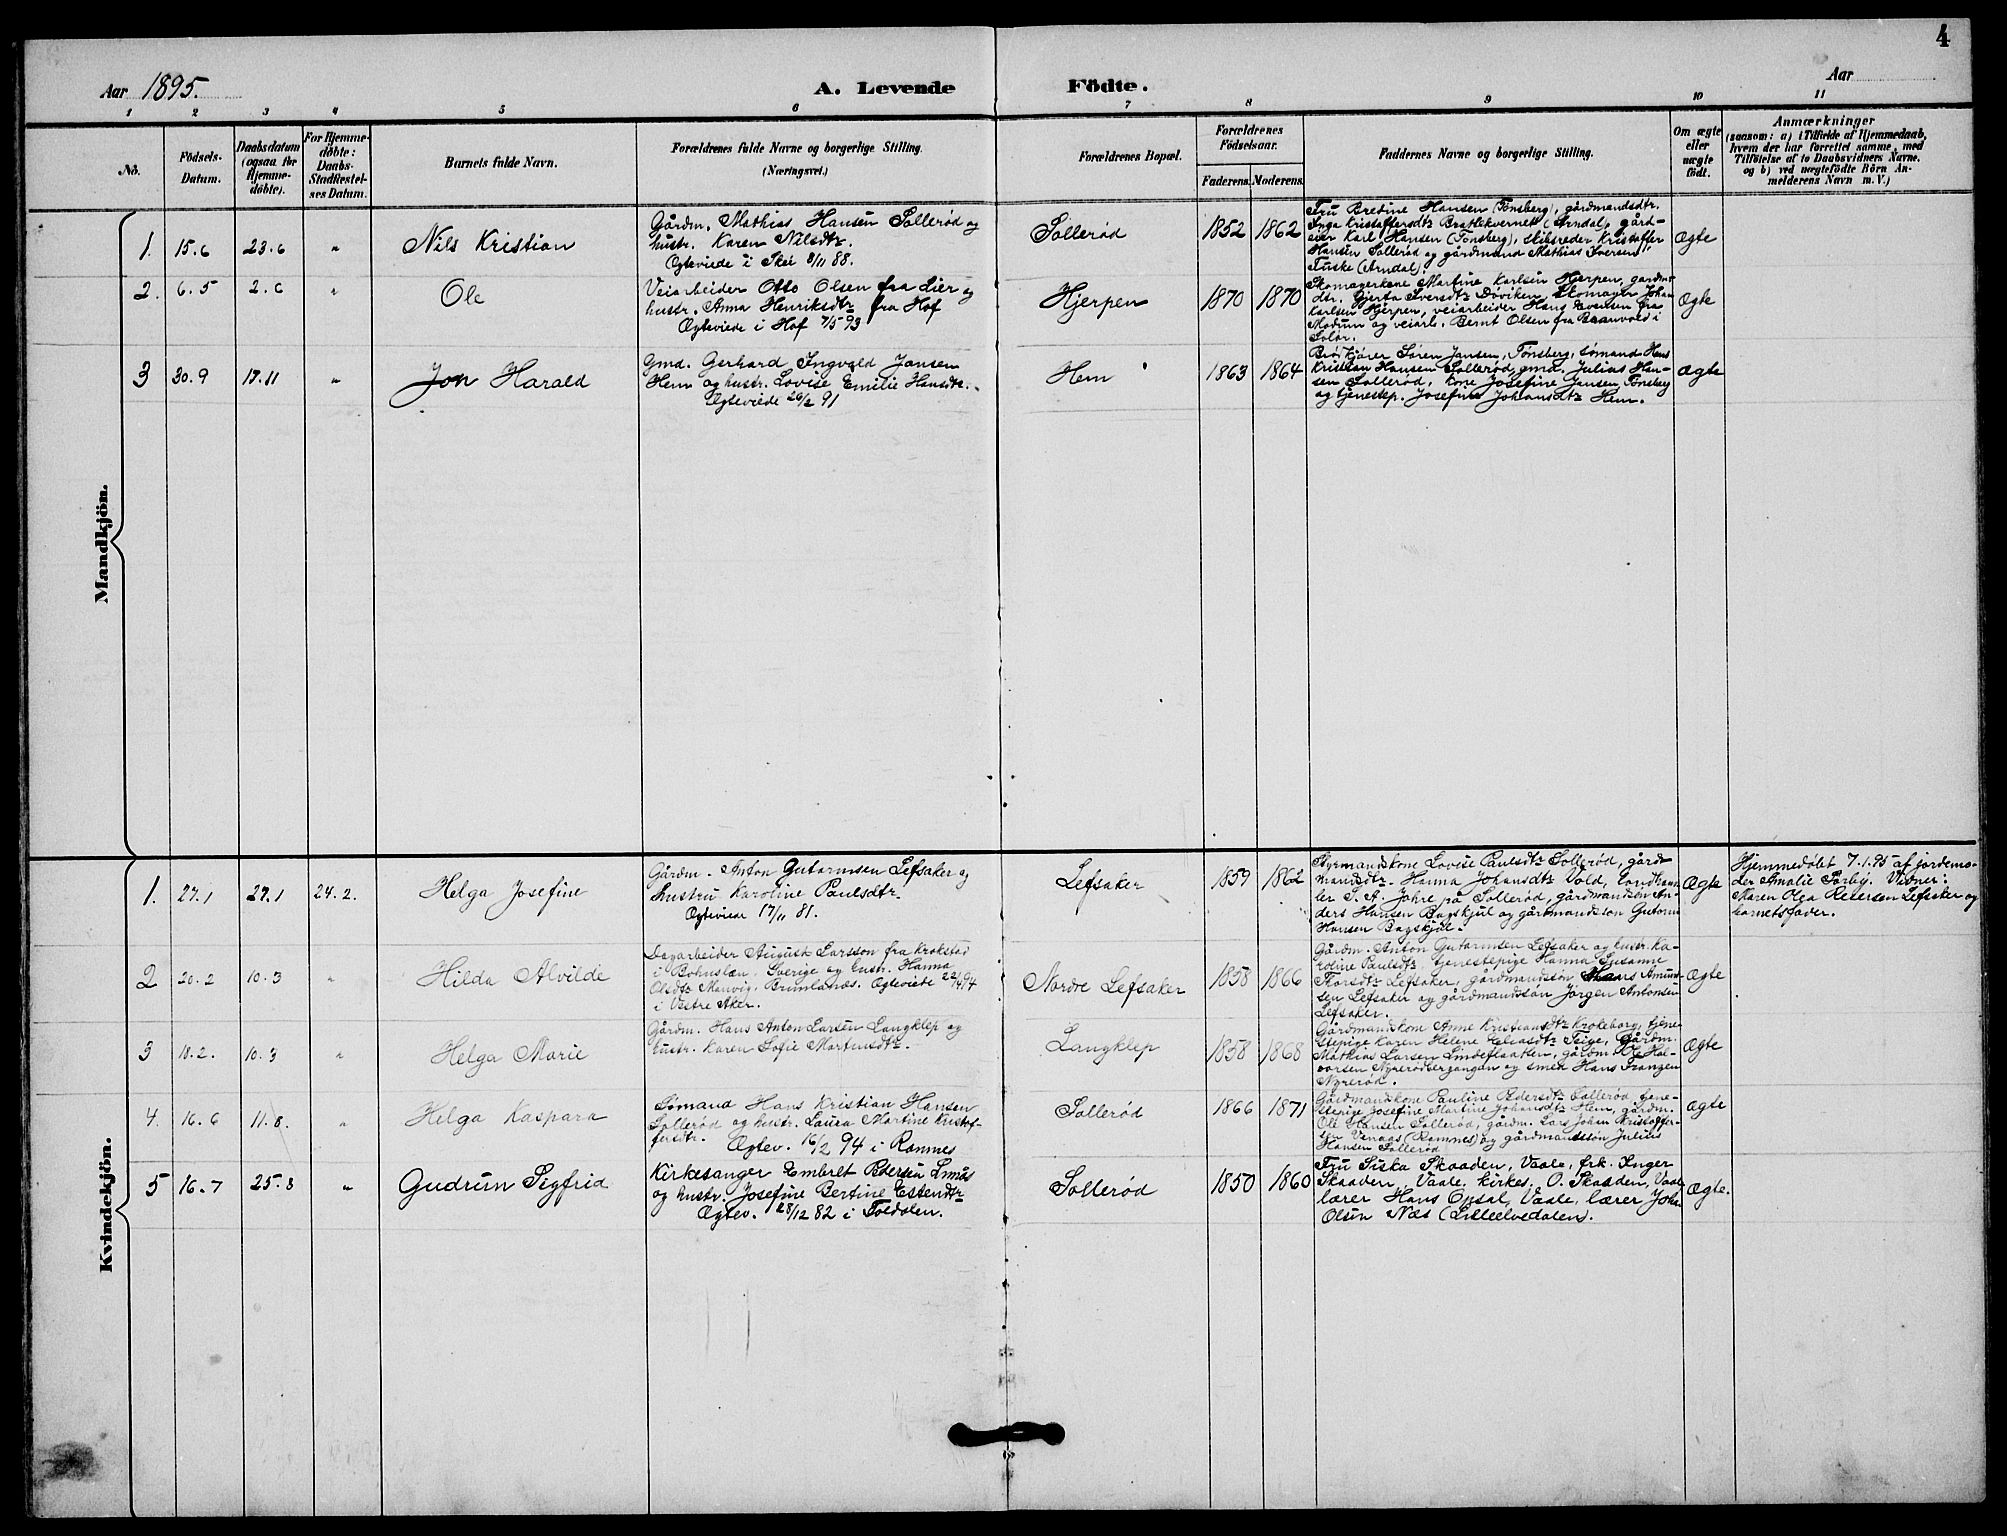 4
Aar 1895.
A. Levende Födte.
Aar
1 2 3 4 5 6 7 8 9 10 11
No.
Födsels-Datum.
Daabsdatum (ogsaa for Hjemme-döbte).
For Hjemme-döbte: Daabs-Stadfæstel-ses Datum.
Barnets fulde Navn.
Forældrenes fulde Navne og borgerlige Stilling.
(Næringsvei.)
Forældrenes Bopæl.
Forældrenes Födselsaar.
Faderens. Moderens.
Faddernes Navne og borgerlige Stilling.
Om ægte eller uægte födt.
Anmærkninger
(saasom: a) i Tilfælde af Hjemmedaab,
hvem der har forrettet samme, med
Tilföielse af to Daabsvidners Navne.
og b) ved uægtefödte Börn An-
melderens Navn m. V.)
Mandkjön.
1. 15.6 23.6 " Nils Kristian
Gårdm. Mathias Hansen Sollerød og
hustr. Karen Nilsdtr.
Ogteviede i Skei 8/11 88.
Sollerød 1852 1862
Fru Bredine Hansen (Tønsberg), gårdmandsdtr.
Inga Kristaffersdtr Brattekvernet (Arndal, gård-
eier Karl Hansen (Tønsberg), skibsreder Kristaffer
Hansen Sollerød og gårdmand Mathias Iversen
Tuske (Arndal).
Ægte
2. 6.5 2.6 " Ole
Veiarbeider Otto Olsen fra Lier og
hustr. Anna Henriksdtr fra Hof
Ogteviede i Hof 7/5 93
Hjerpen 1870 1870
Skomagerkone Martine Karlsen Hjerpen, gårdm.
dtr. Gjerta Iversdtr Døviken, skomager Johan
Karlsen Hjerpen, veiarbeider Hans Evensen fra
Modum og veiarb. Bernt Olsen fra Baanvold i
Solør.
Ægte
3 30.9 17.11 " Jon Harald
Gmd. Gerhard Ingvald Jansen
Hem og hustr. Lovise Emilie Hansdtr.
Ogteviede 26/2 91
Hem 1863 1864
Søren Jansen, Tønsberg, sømand Hans
Kristian Hansen Sollerød, gmd. Julius Han-
sen Sollerød, kone Josefine Jansen, Tønsberg
og tjenestep. Josefine Johansdtr Hem.
Ægte
Kvindekjön.
1. 27.1 27.1 24.2. Helga Josefine
Gårdm. Anton Gutormsen Lefsaker og
hustru Karoline Paulsdtr.
Ogteviede 17/11 81.
Lefsaker 1859 1862
Styrmandskone Lovise Paulsdtr Sollerød, gård-
mandsdtr. Hanna Johansdtr Vold, Landhand-
ler S. A. Jahre på Sollerød, gårdmandsøn An-
ders Hansen Bagskjul og gårdmandsøn Gutorm
Hansen Bagskjul.
Ægte
Hjemmedøbt 7.1.95 af jordemo-
der Amalie Sørby. Vidner:
Maren Olea Petersen Lefsaker og
barnets fader.
2 20.2 10.3 " Hilda Alvilde
Dagarbeider August Larsson fra Krokstad
i Bohuslæn, Sverige og hustr. Hanna
Olsdtr Manvig, Brunlanæs. Ogteviede
i Vestre Aker.
Nordre Lefsaker 1858 1866
Gårdm. Anton Gutormsen Lefsaker og hustr. Ka-
roline Paulsdtr, tjenestepige Hanna Susanne
Thorsdtr Lefsaker, gårdmandsøn Hans Amund-
sen Lefsaker og gårdmandsøn Jørgen Antonsen
Lefsaker.
Ægte
3 18.2. 10.3 " Helga Marie
Gårdm. Hans Anton Larsen Langklep og
hustr. Karen Sofie Martinsdtr.
Langklep 1858 1868
Gårdmandskone Anne Kristiansdtr Krokeborg, tjene-
stepige Karen Helene Eliasdtr Teige, Gårdm.
Mathias Larsen Lindeflaaten, gårdm. Ole Hal-
vorsen Nyrerødbergangen og smed Hans Franzen
Nyrerød.
Ægte
4. 16.6 11.8. " Helga Kaspara
Sømand Hans Kristian Hansen
Sollerød og hustr. Laura Martine Kristof-
fersdtr. Ogtev. 16/2 94 i Ramnes
Sollerød 1866 1871
Gårdmandskone Pauline Pedersdtr Sollerød, tjene-
stepige Josefine Martine Johansdtr Hem, gårdm.
Ole Hansen Sollerød, gårdm. Lars Johan Kristoffer-
sen Venaas (Ramnes) og gårdmandsøn Julius
Hansen Sollerød
Ægte
5 16.7 25.8 " Gudrun Sigfrid
Kirkesanger Embret Pedersen Emås
og hustr. Josefine Bertine Estendtr
Ogtev. 28/12 82 i Foldalen.
Sollerød 1850 1860
Fru Siska Skaaden, Vaale, frk. Inger
Skaaden, Vaale. Kirkes. O. Skaaden, Vaale
lærer Hans Opsal, Vaale, lærer Johan
Olsen Næs (Lilleelvedalen).
Ægte.